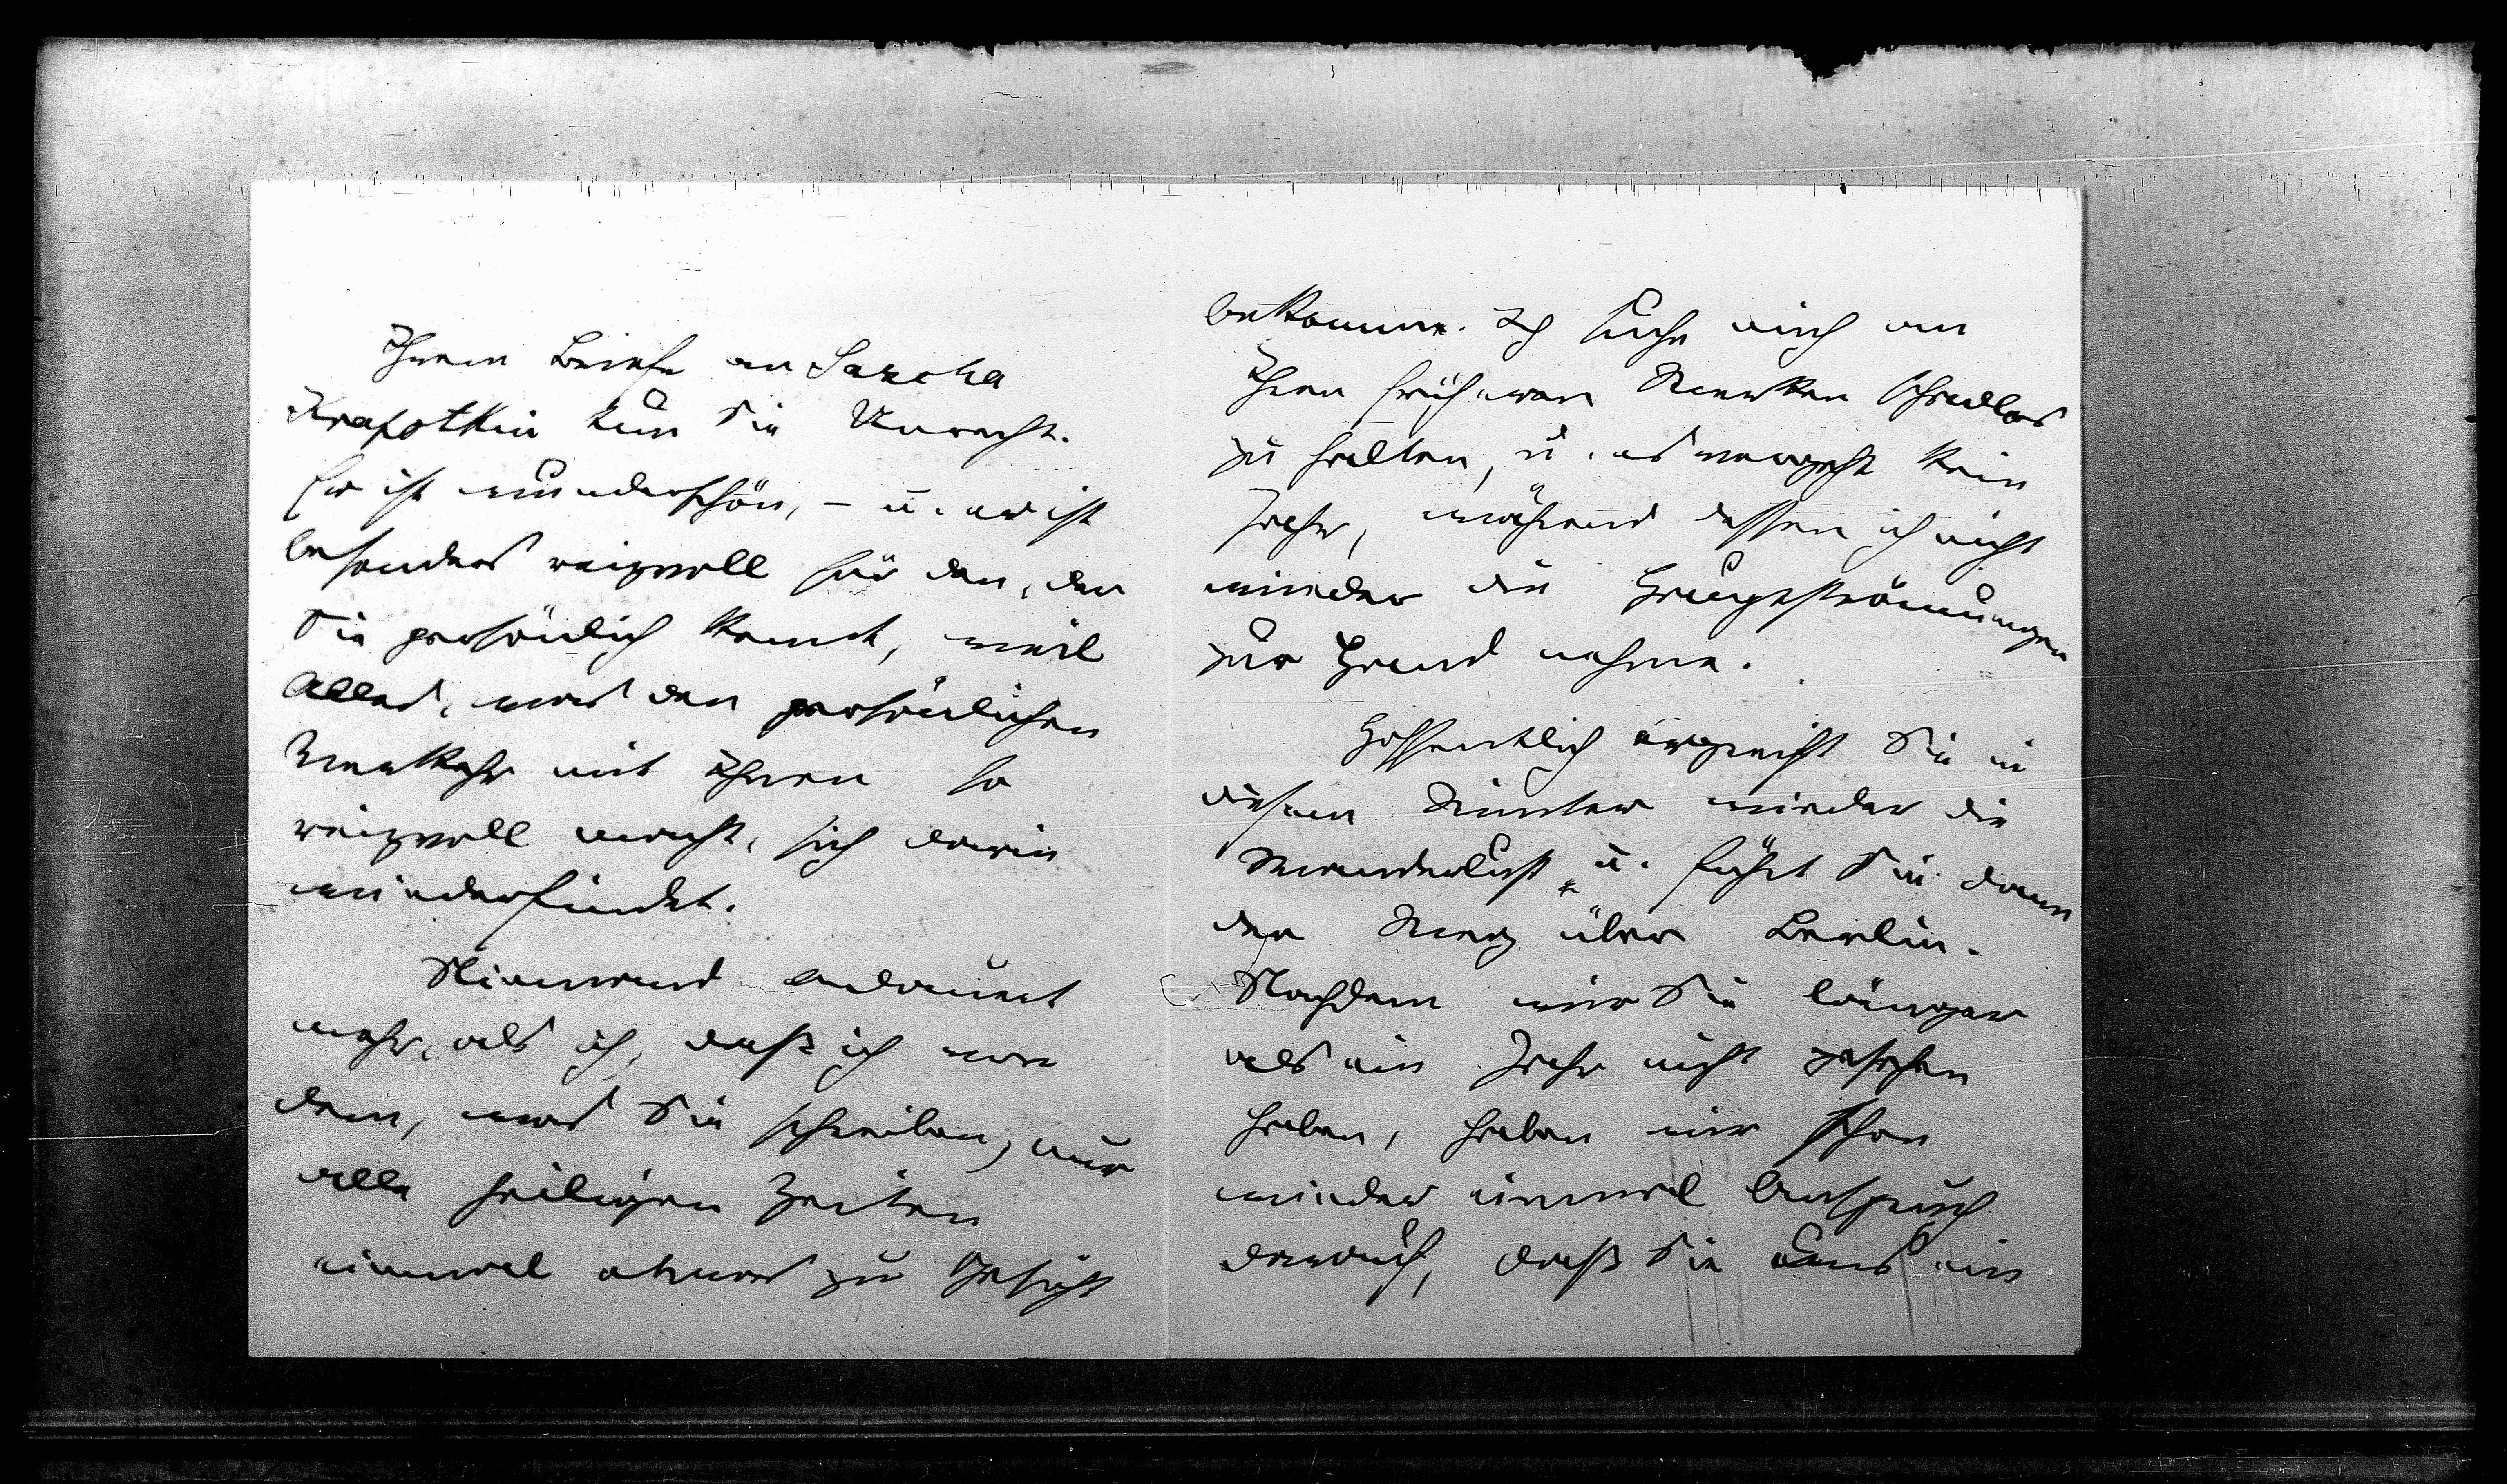 Ihrem Briefe an Sascha
Krapotkin tun Sie Unrecht.
Er ist wunderschön, – u. er ist
besonders reizvoll für den, der
Sie persönlich kennt, weil
Alles, was den persönlichen
Verkehr mit Ihnen so
reizvoll macht, sich darin
wiederfindet.
Niemand bedauert
mehr, als ich, daß ich von
dem, was Sie schreiben, nur
alle heiligen Zeiten
einmal etwas zu Gesicht
bekomme. Ich suche mich an
Ihren früheren Werken schadlos
zu halten, u. es vergeht kein
Jahr, während dessen ich nicht
wieder die Hauptströmungen
zur Hand nehme.
Hoffentlich ergreift Sie in
diesem Winter wieder die
Wanderlust u. führt Sie dann
der Weg über Berlin.
Nachdem wir Sie länger
als ein Jahr nicht gesehen
haben, haben wir schon
wieder einmal Anspruch
darauf, daß Sie uns ein